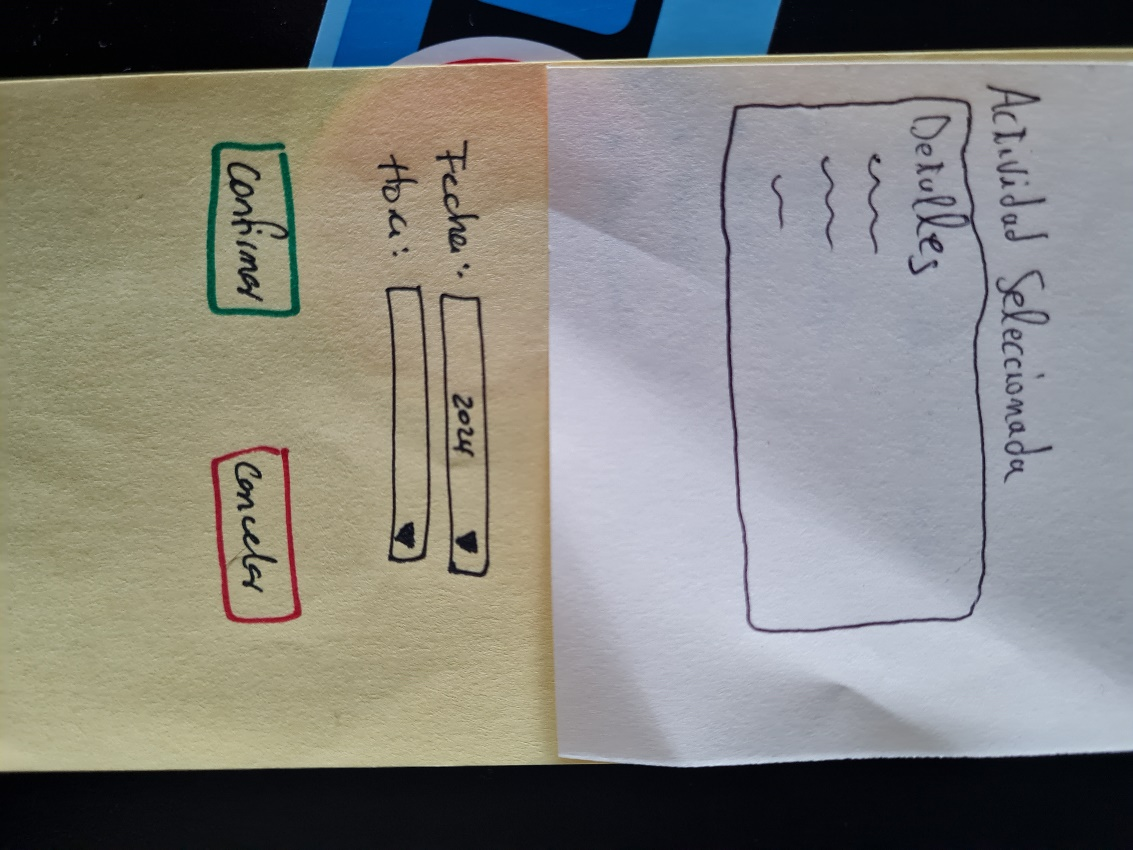 Actividad Seleccionada
Detalles
Fecha: 2024
Hora:
Confirmar
Cancelar